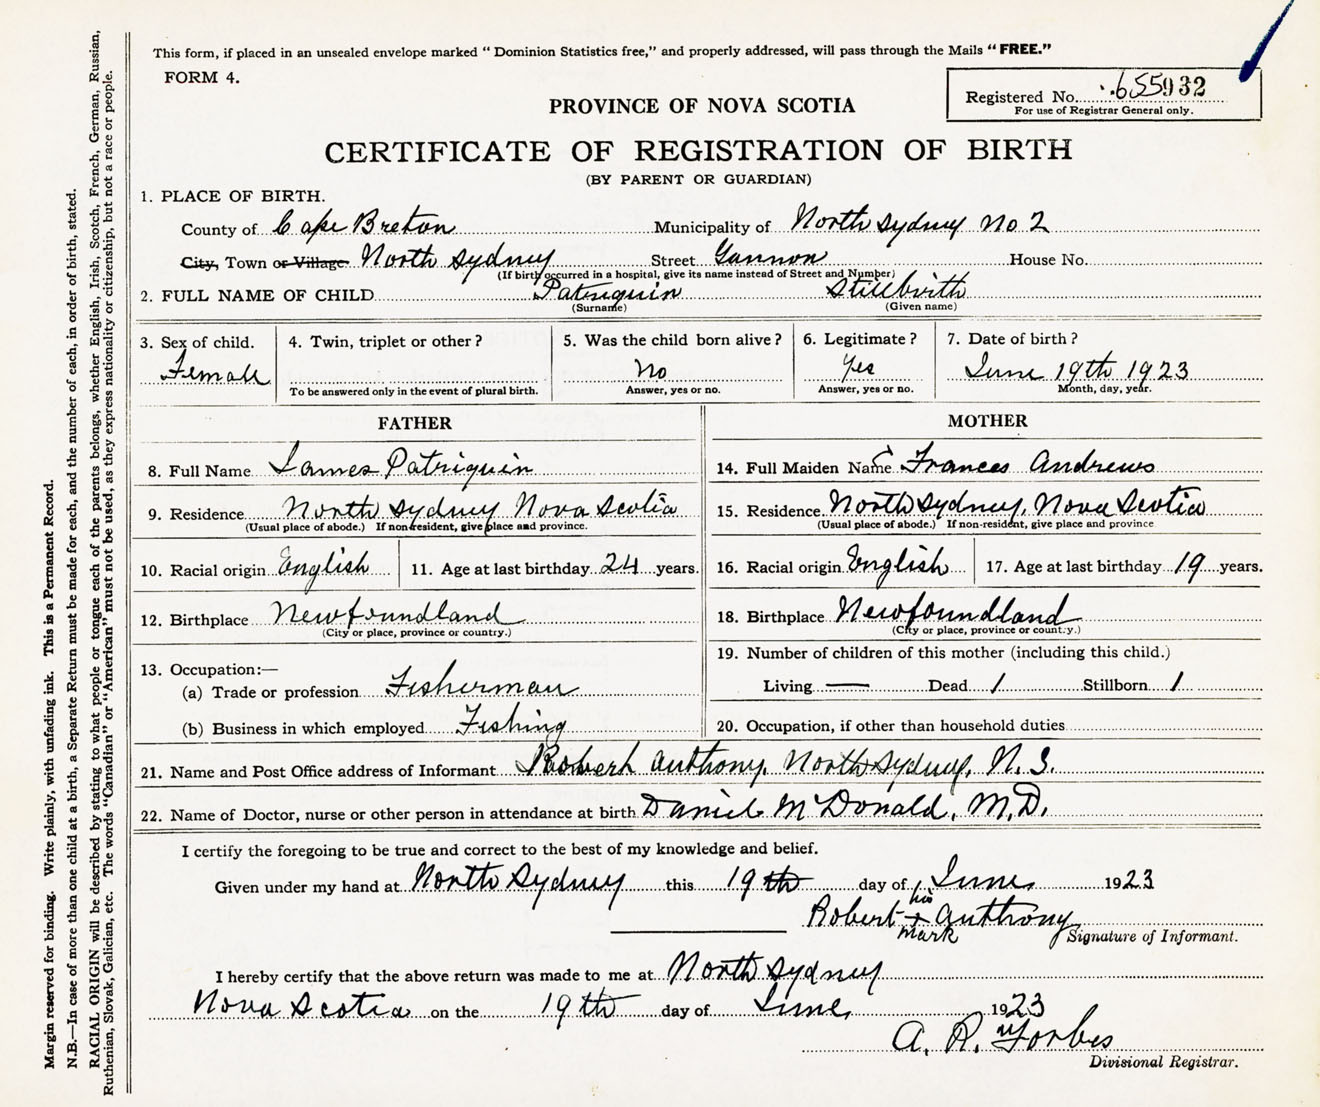 This form, if placed in an unsealed envelope marked "Dominion Statistics free," and properly addressed, will pass through the Mails "FREE."
FORM 4.
Registered No. 655932
For use of Registrar General only.
PROVINCE OF NOVA SCOTIA
CERTIFICATE OF REGISTRATION OF BIRTH
(BY PARENT OR GUARDIAN)
1. PLACE OF BIRTH.
County of Cape Breton Municipality of North Sydney No 2
City, Town or Village North Sydney Street Gannon House No.
(If birth occurred in a hospital, give its name instead of Street and Number)
2. FULL NAME OF CHILD Patriquin Stillbirth
(Surname) (Given name)
3. Sex of child. 4. Twin, triplet or other? 5. Was the child born alive? 6. Legitimate? 7. Date of birth?
Female No Yes June 19th 1923
To be answered only in the event of plural birth. Answer, yes or no. Answer, yes or no. Month, day, year.
FATHER MOTHER
8. Full Name James Patriquin 14. Full Maiden Name Frances Andrews
9. Residence North Sydney Nova Scotia 15. Residence North Sydney, Nova Scotia
(Usual place of abode.) If non-resident, give place and province. (Usual place of abode.) If non-resident, give place and province
10. Racial origin English 11. Age at last birthday 24 years. 16. Racial origin English 17. Age at last birthday 19 years.
12. Birthplace Newfoundland 18. Birthplace Newfoundland
(City or place, province or country.) (City or place, province or country.)
13. Occupation:— 19. Number of children of this mother (including this child.)
(a) Trade or profession Fisherman Living — Dead 1 Stillborn 1
(b) Business in which employed Fishing 20. Occupation, if other than household duties
21. Name and Post Office address of Informant Robert Anthony, North Sydney, N. S.
22. Name of Doctor, nurse or other person in attendance at birth Daniel McDonald, M.D.
I certify the foregoing to be true and correct to the best of my knowledge and belief.
Given under my hand at North Sydney this 19th day of June, 1923
his
Robert + Anthony
mark
Signature of Informant.
I hereby certify that the above return was made to me at North Sydney
Nova Scotia on the 19th day of June, 1923
A. R. Forbes
Divisional Registrar.
Margin reserved for binding. Write plainly, with unfading ink. This is a Permanent Record.
N.B.—In case of more than one child at a birth, a Separate Return must be made for each, and the number of each, in order of birth, stated.
RACIAL ORIGIN will be described by stating to what people or tongue each of the parents belongs, whether English, Irish, Scotch, French, German, Russian,
Ruthenian, Slovak, Galician, etc. The words "Canadian" or "American" must not be used, as they express nationality or citizenship, but not a race or people.